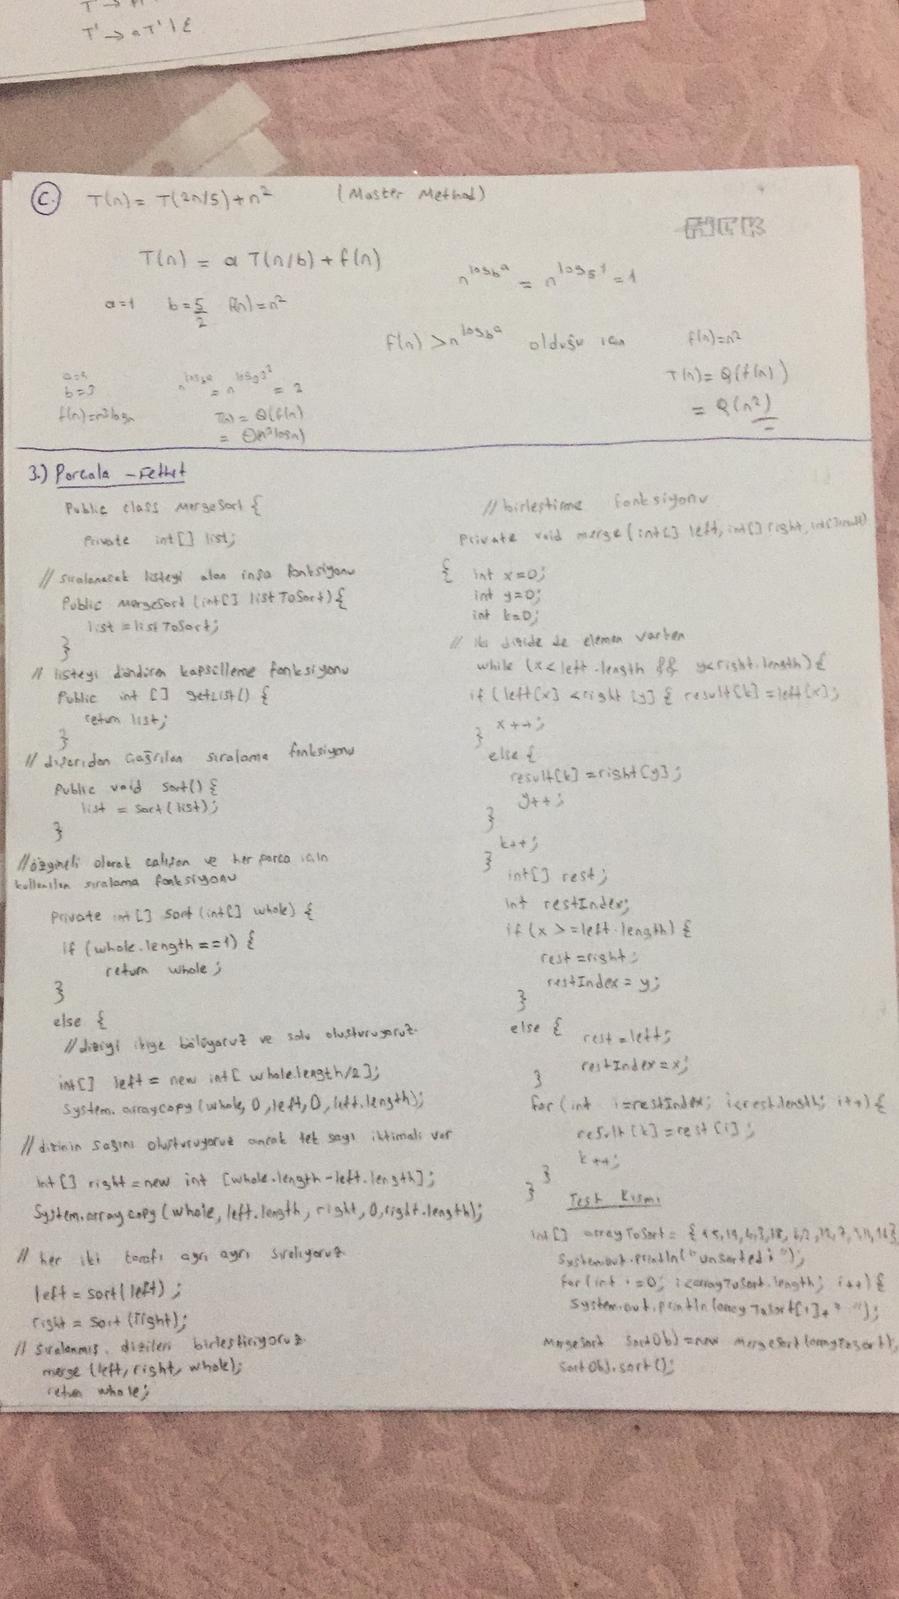 T' → aT' | ε
C. T(n) = T(2n/5) + n² (Master Method)
T(n) = a T(n/b) + f(n)
n^log_b^a = n^log_5^1 = 1
a=1 b=5/2 f(n)=n²
f(n) > n^log_b^a olduğu için
f(n)=n²
T(n) = Θ(f(n))
= Θ(n²)
b=3
= 2
T(n) = Θ(f(n)
3.) Parçala - Fethet
Public class MergeSort {
Private int[] list;
// sıralanacak listeyi alan inşa fonksiyonu
Public MergeSort (int[] listToSort) {
list = listToSort;
}
// listeyi döndüren kapsülleme fonksiyonu
Public int [] getList() {
return list;
}
// dışarıdan çağrılan sıralama fonksiyonu
Public void sort() {
list = sort(list);
}
// özyineli olarak çalışan ve her parça için
kullanılan sıralama fonksiyonu
Private int[] sort (int[] whole) {
if (whole.length == 1) {
return whole;
}
else {
// diziyi ikiye bölüyoruz ve solu oluşturuyoruz.
int[] left = new int[ whole.length/2];
System.arraycopy (whole, 0, left, 0, left.length);
// dizinin sağını oluşturuyoruz ancak tek sayı ihtimali var
int[] right = new int [whole.length-left.length];
System.arraycopy (whole, left.length, right, 0, right.length);
// her iki tarafı ayrı ayrı sıralıyoruz
left = sort(left);
right = sort (right);
// sıralanmış dizileri birleştiriyoruz
merge (left, right, whole);
return whole;
// birleştirme fonksiyonu
Private void merge (int[] left, int[] right, int[] result)
{ int x=0;
int y=0;
int k=0;
// iki dizide de eleman varken
while (x<left.length && y<right.length) {
if (left[x] <right [y] { result[k] =left[x];
x++;
}
else {
result[k] =right[y];
y++;
}
k++;
}
int[] rest;
int restIndex;
if (x >=left.length) {
rest =right;
restIndex = y;
}
else {
rest =left;
restIndex=x;
}
for (int i=restIndex; i<rest.length; i++) {
result [k] =rest [i];
k++;
}
}
Test Kısmı
int[] arrayToSort =
System.out.println("unsorted:");
for (int i=0; i<arrayToSort.length; i++) {
System.out.println(arrayToSort[i]+" ");
MergeSort sortObj =new MergeSort(arrayToSort);
sortObj.sort();